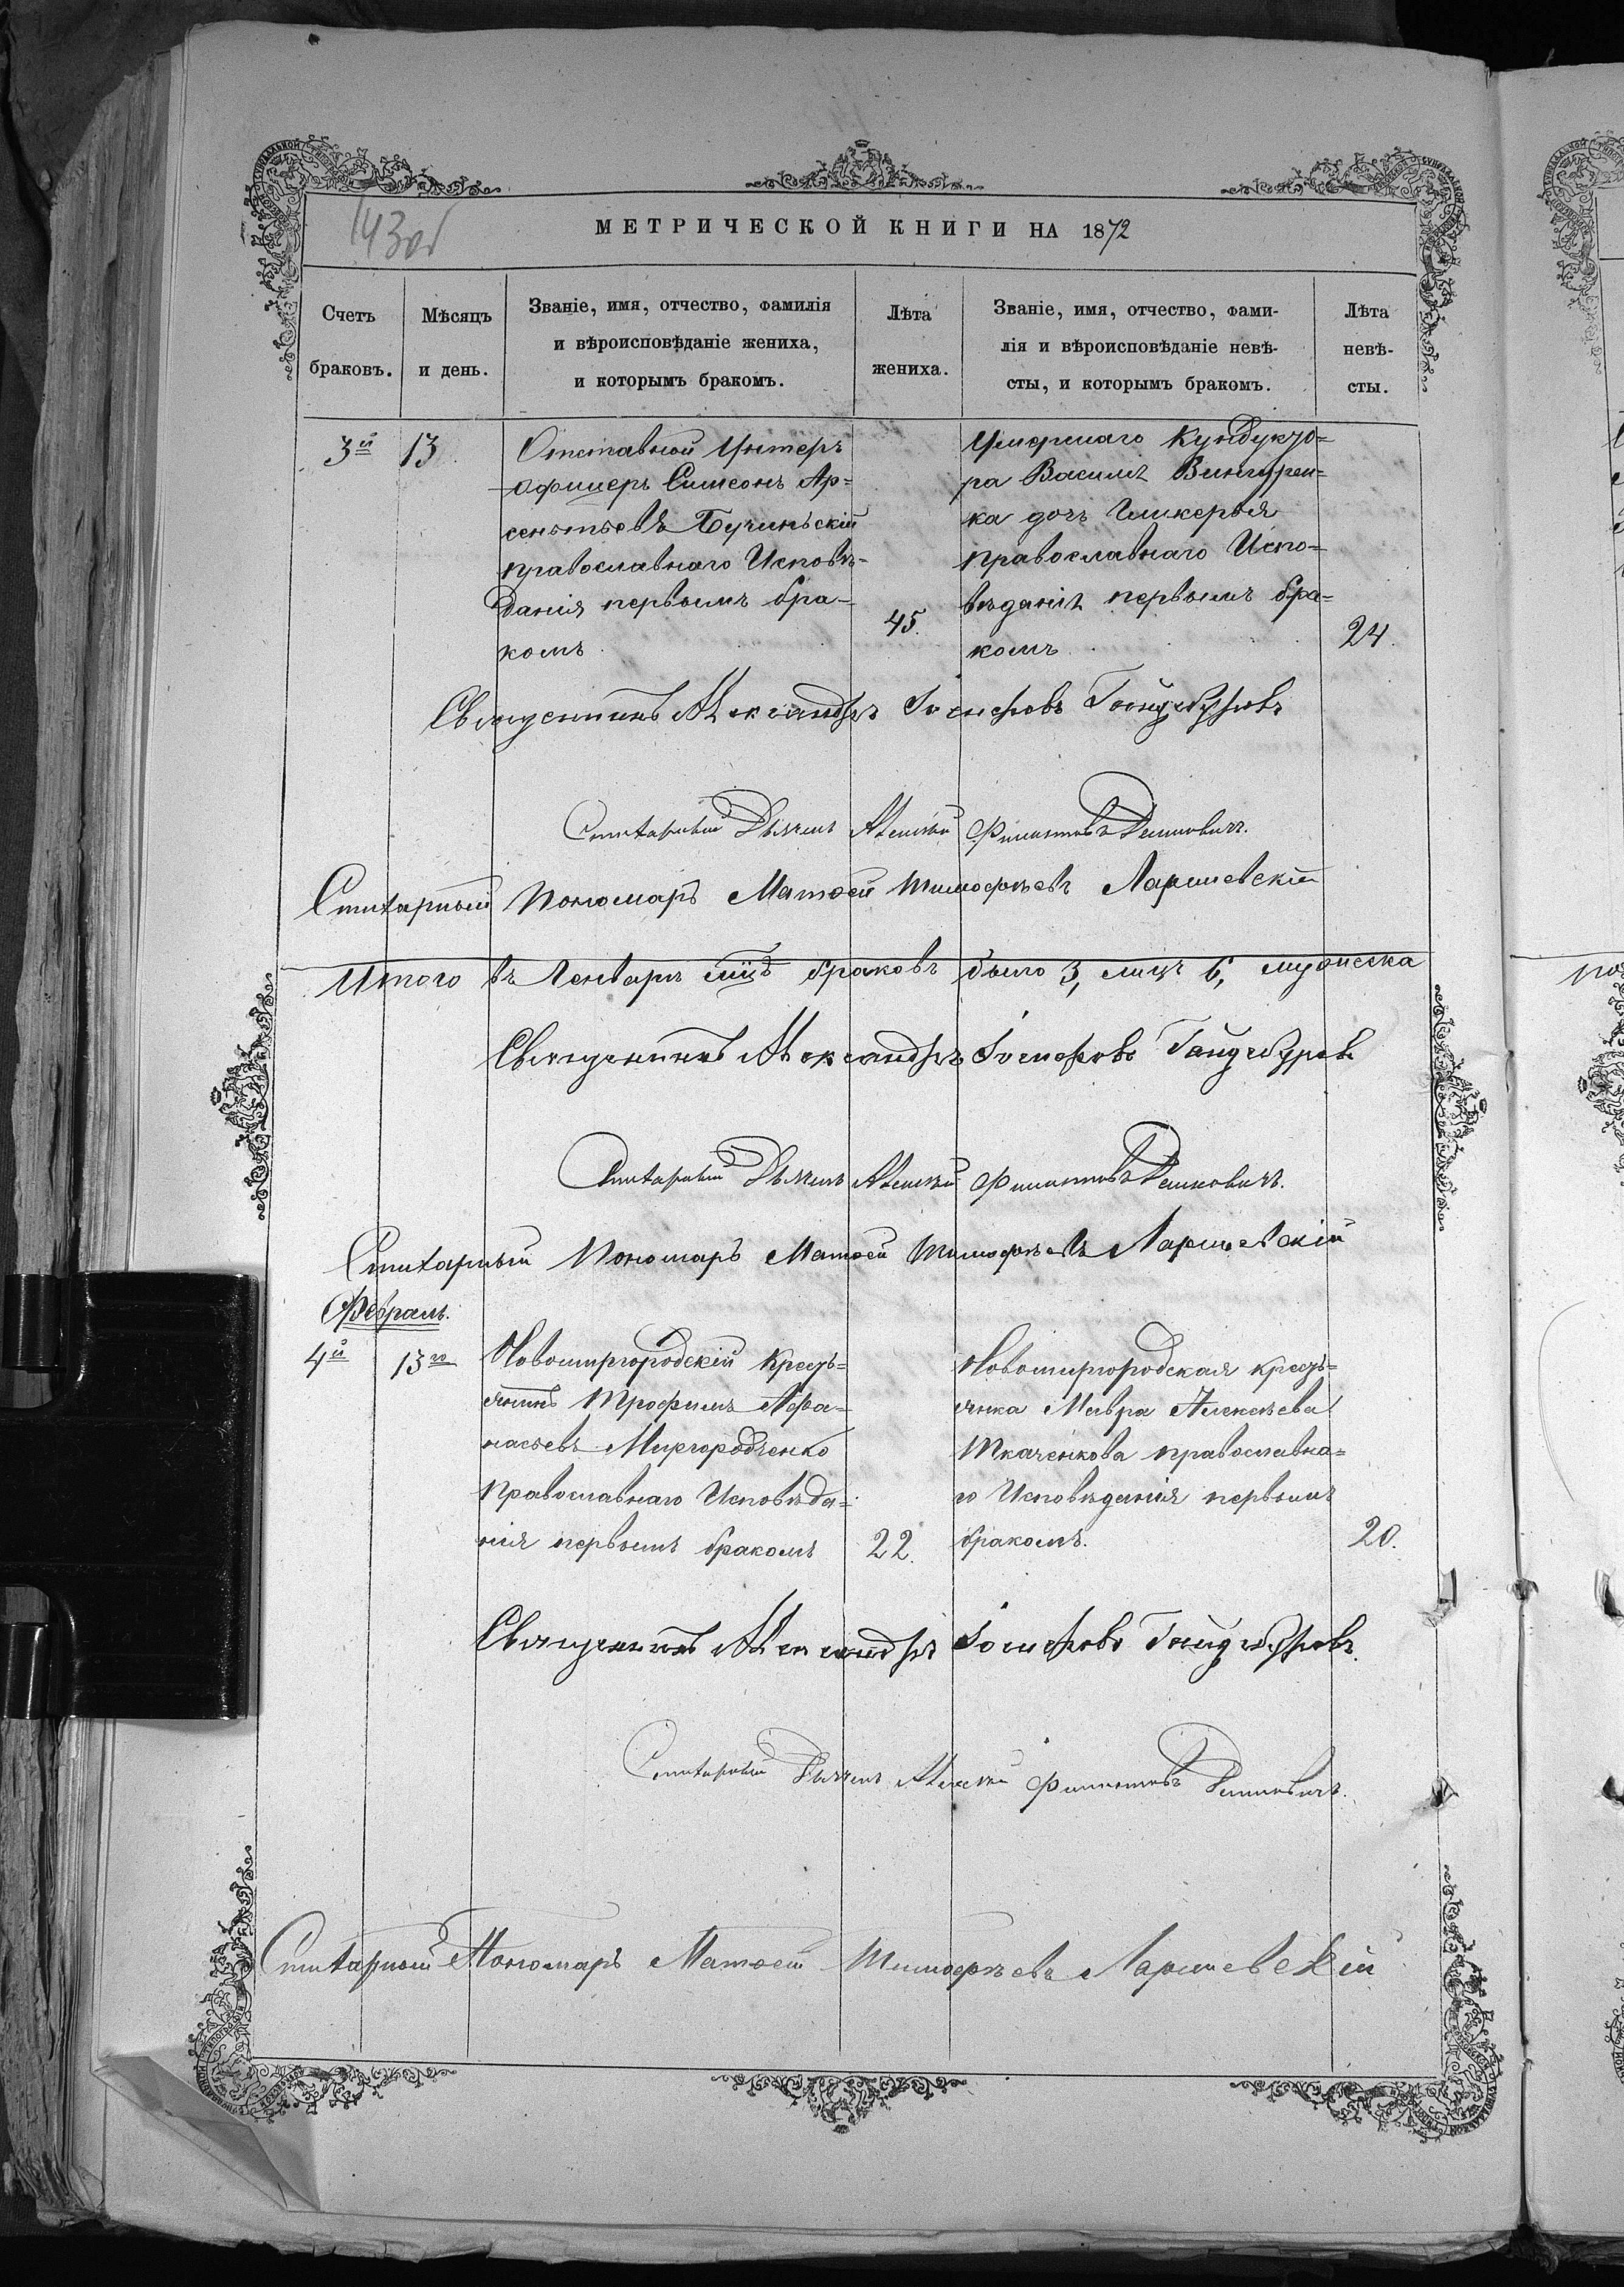 143об
МЕТРИЧЕСКОЙ КНИГИ НА 1872
Счетъ браковъ.
Мѣсяцъ и день.
Званіе, имя, отчество, фамилія
и вѣроисповѣданіе жениха,
и которымъ бракомъ.
Лѣта жениха.
Званіе, имя, отчество, фами-
лія и вѣроисповѣданіе невѣ-
сты, и которымъ бракомъ.
Лѣта невѣ-
сты.
3й 13
Отставной Унтеръ
Офицеръ Симеонъ Ар=
сентьевъ Бучинскій
православнаго Исповѣ-
данія первымъ бра-
комъ
45.
Умершаго Кундукто=
ра Василія
ка дочь Гликерія
православнаго Испо=
вѣданія первымъ бра=
комъ
24.
Священникъ Александръ Іосифовъ Гайдабуровъ
Стихарный Дьячекъ Алексѣй Филиповъ
Стихарный Пономарь Матѳей Тимофѣевъ Ларшевскій
Итого въ Генварѣ мцѣ браковъ было 3, лицъ 6, мужеска
Священникъ Александръ Іосифовъ Гайдабуровъ
Стихарный Дьячекъ Алексѣй Филиповъ
Стихарный Пономарь Матѳей Тимофѣевъ Ларшевскій
Февраль.
4й 13го
Новомиргородскій Кресть=
янинъ Трофимъ Афа=
насьевъ Миргородченко
Православнаго Исповѣда=
нія первымъ бракомъ
22.
Новомиргородская кресть=
янка Мавра Алексѣева
Ткаченкова православна=
го Исповѣданія первымъ
бракомъ.
20.
Священникъ Александръ Іосифовъ Гайдабуровъ.
Стихарный Дьячекъ Алексѣй Филиповъ
Стихарный Пономарь Матѳей Тимофѣевъ Ларшевскій